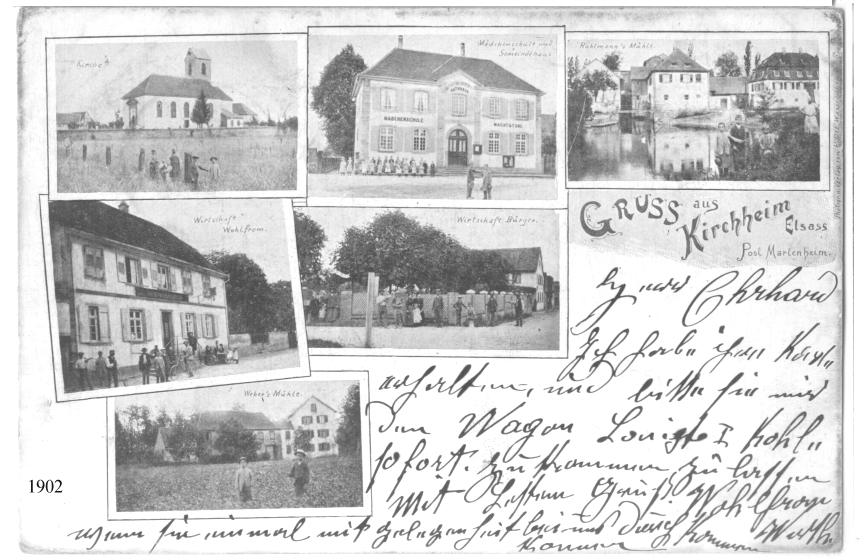 Kirche
Mädchenschule und
Gemeindehaus
MÄDCHENSCHULE
Ruhlmann's Mühle.
GRUSS aus
Kirchheim
Elsass
Post Marlenheim.
Wirtschaft
Wohlfrom.
Wirtschaft Bürger.
Weber's Mühle.
1902
Ehrhard
Ich habe ihre Karte
erhalten, und bitte sie mir
den Wagon Kohl
sofort zu kommen zu lassen
Mit Gruß Wohlfrom
Wirth
wenn sie einmal mit gelegenheit bei uns durch kommen